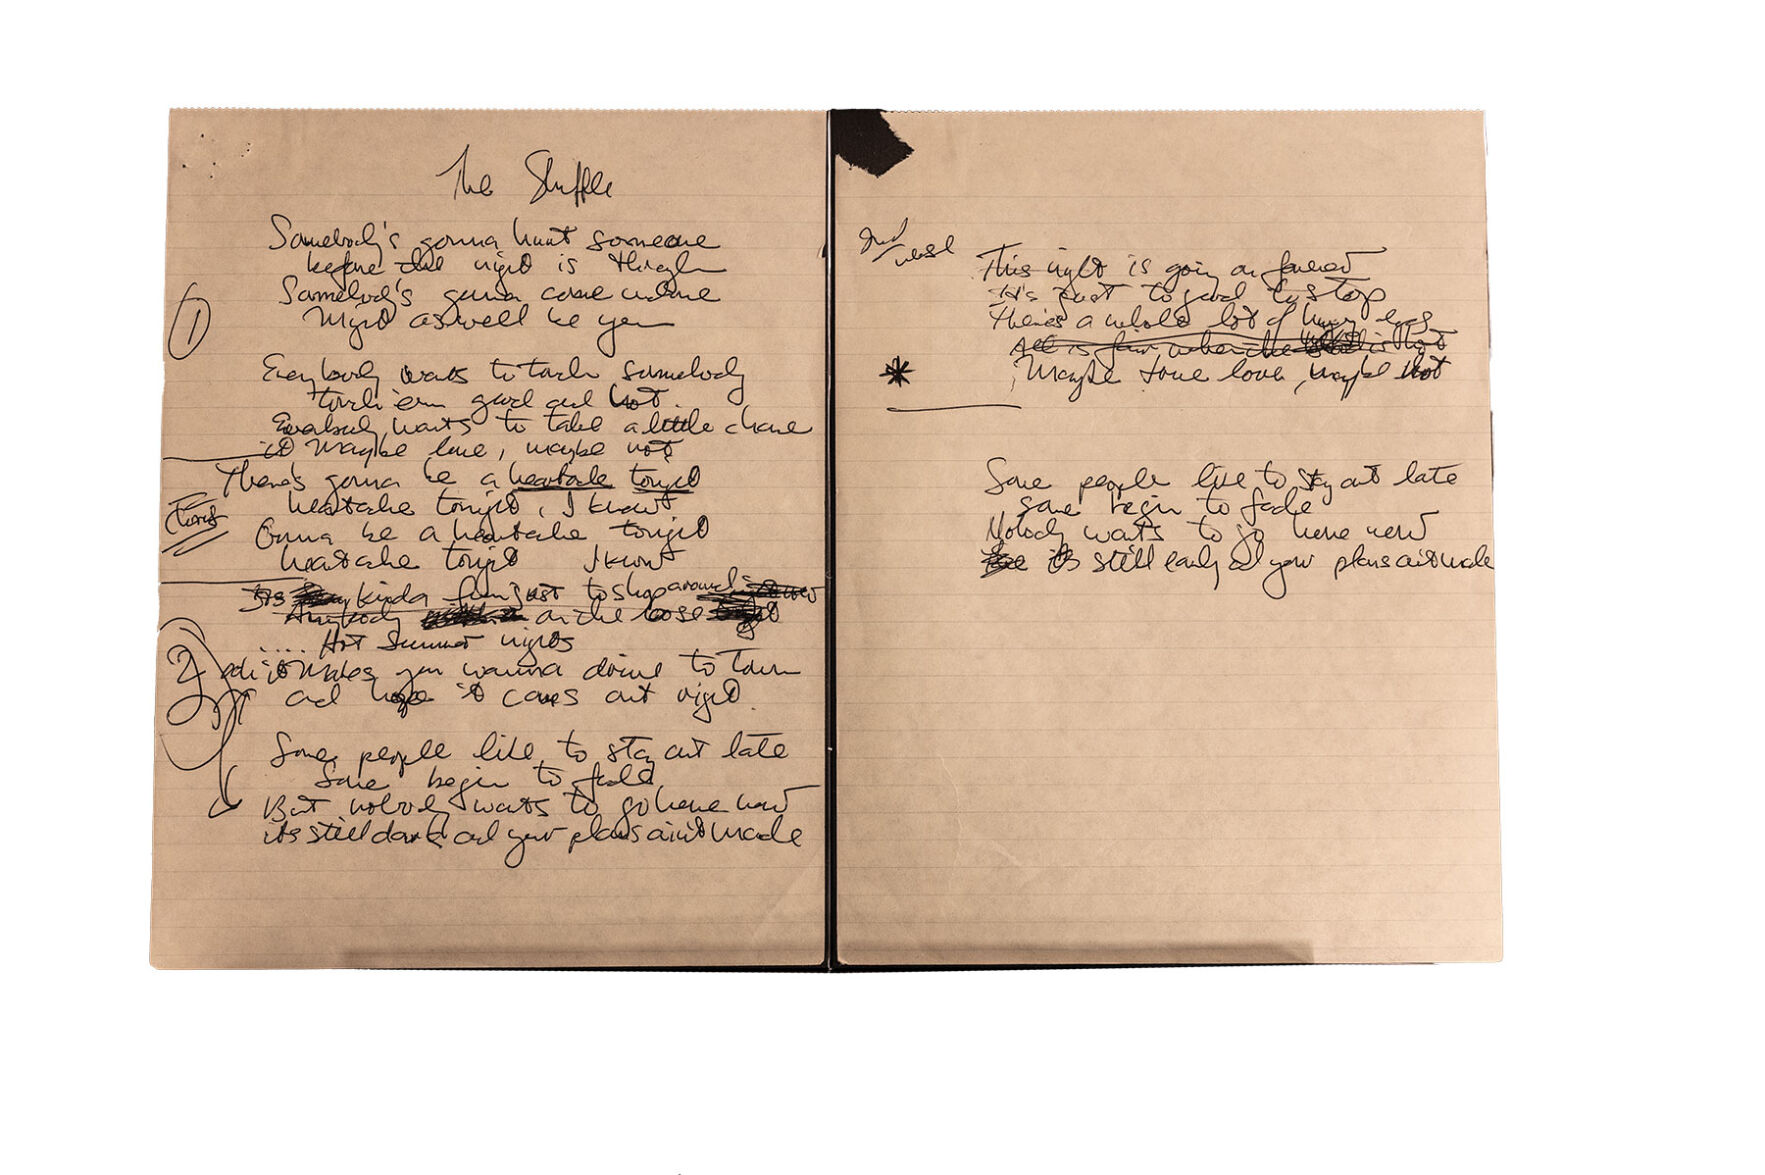 The Shuffle
Somebody's gonna hurt someone
before the night is through
Somebody's gonna come undone
Might as well be you
1
Everybody wants to touch somebody
touch 'em good and hot
Everybody wants to take a little chance
Maybe love, maybe not
There's gonna be a heartache tonight
heartache tonight, I know
Chorus
Gonna be a heartache tonight
heartache tonight I know
Its kinda fun just to shop around
Anybody on the loose
.... Hot Summer nights
2 it makes you wanna drive to town
and hope it comes out right.
Some people like to stay out late
Some begin to fade
But nobody wants to go home now
its still dark and your plans ain't made
2nd verse
This night is going on forever
It's just to good to stop
There's a whole lot of hungry eyes
All is fair when the is hot
* Maybe true love, maybe not
Some people like to stay out late
some begin to fade
Nobody wants to go home now
its still early and your plans ain't made